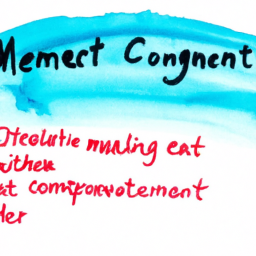 Memect Congnent
Iteolutie nunling eat
withex
at comporvotement
der